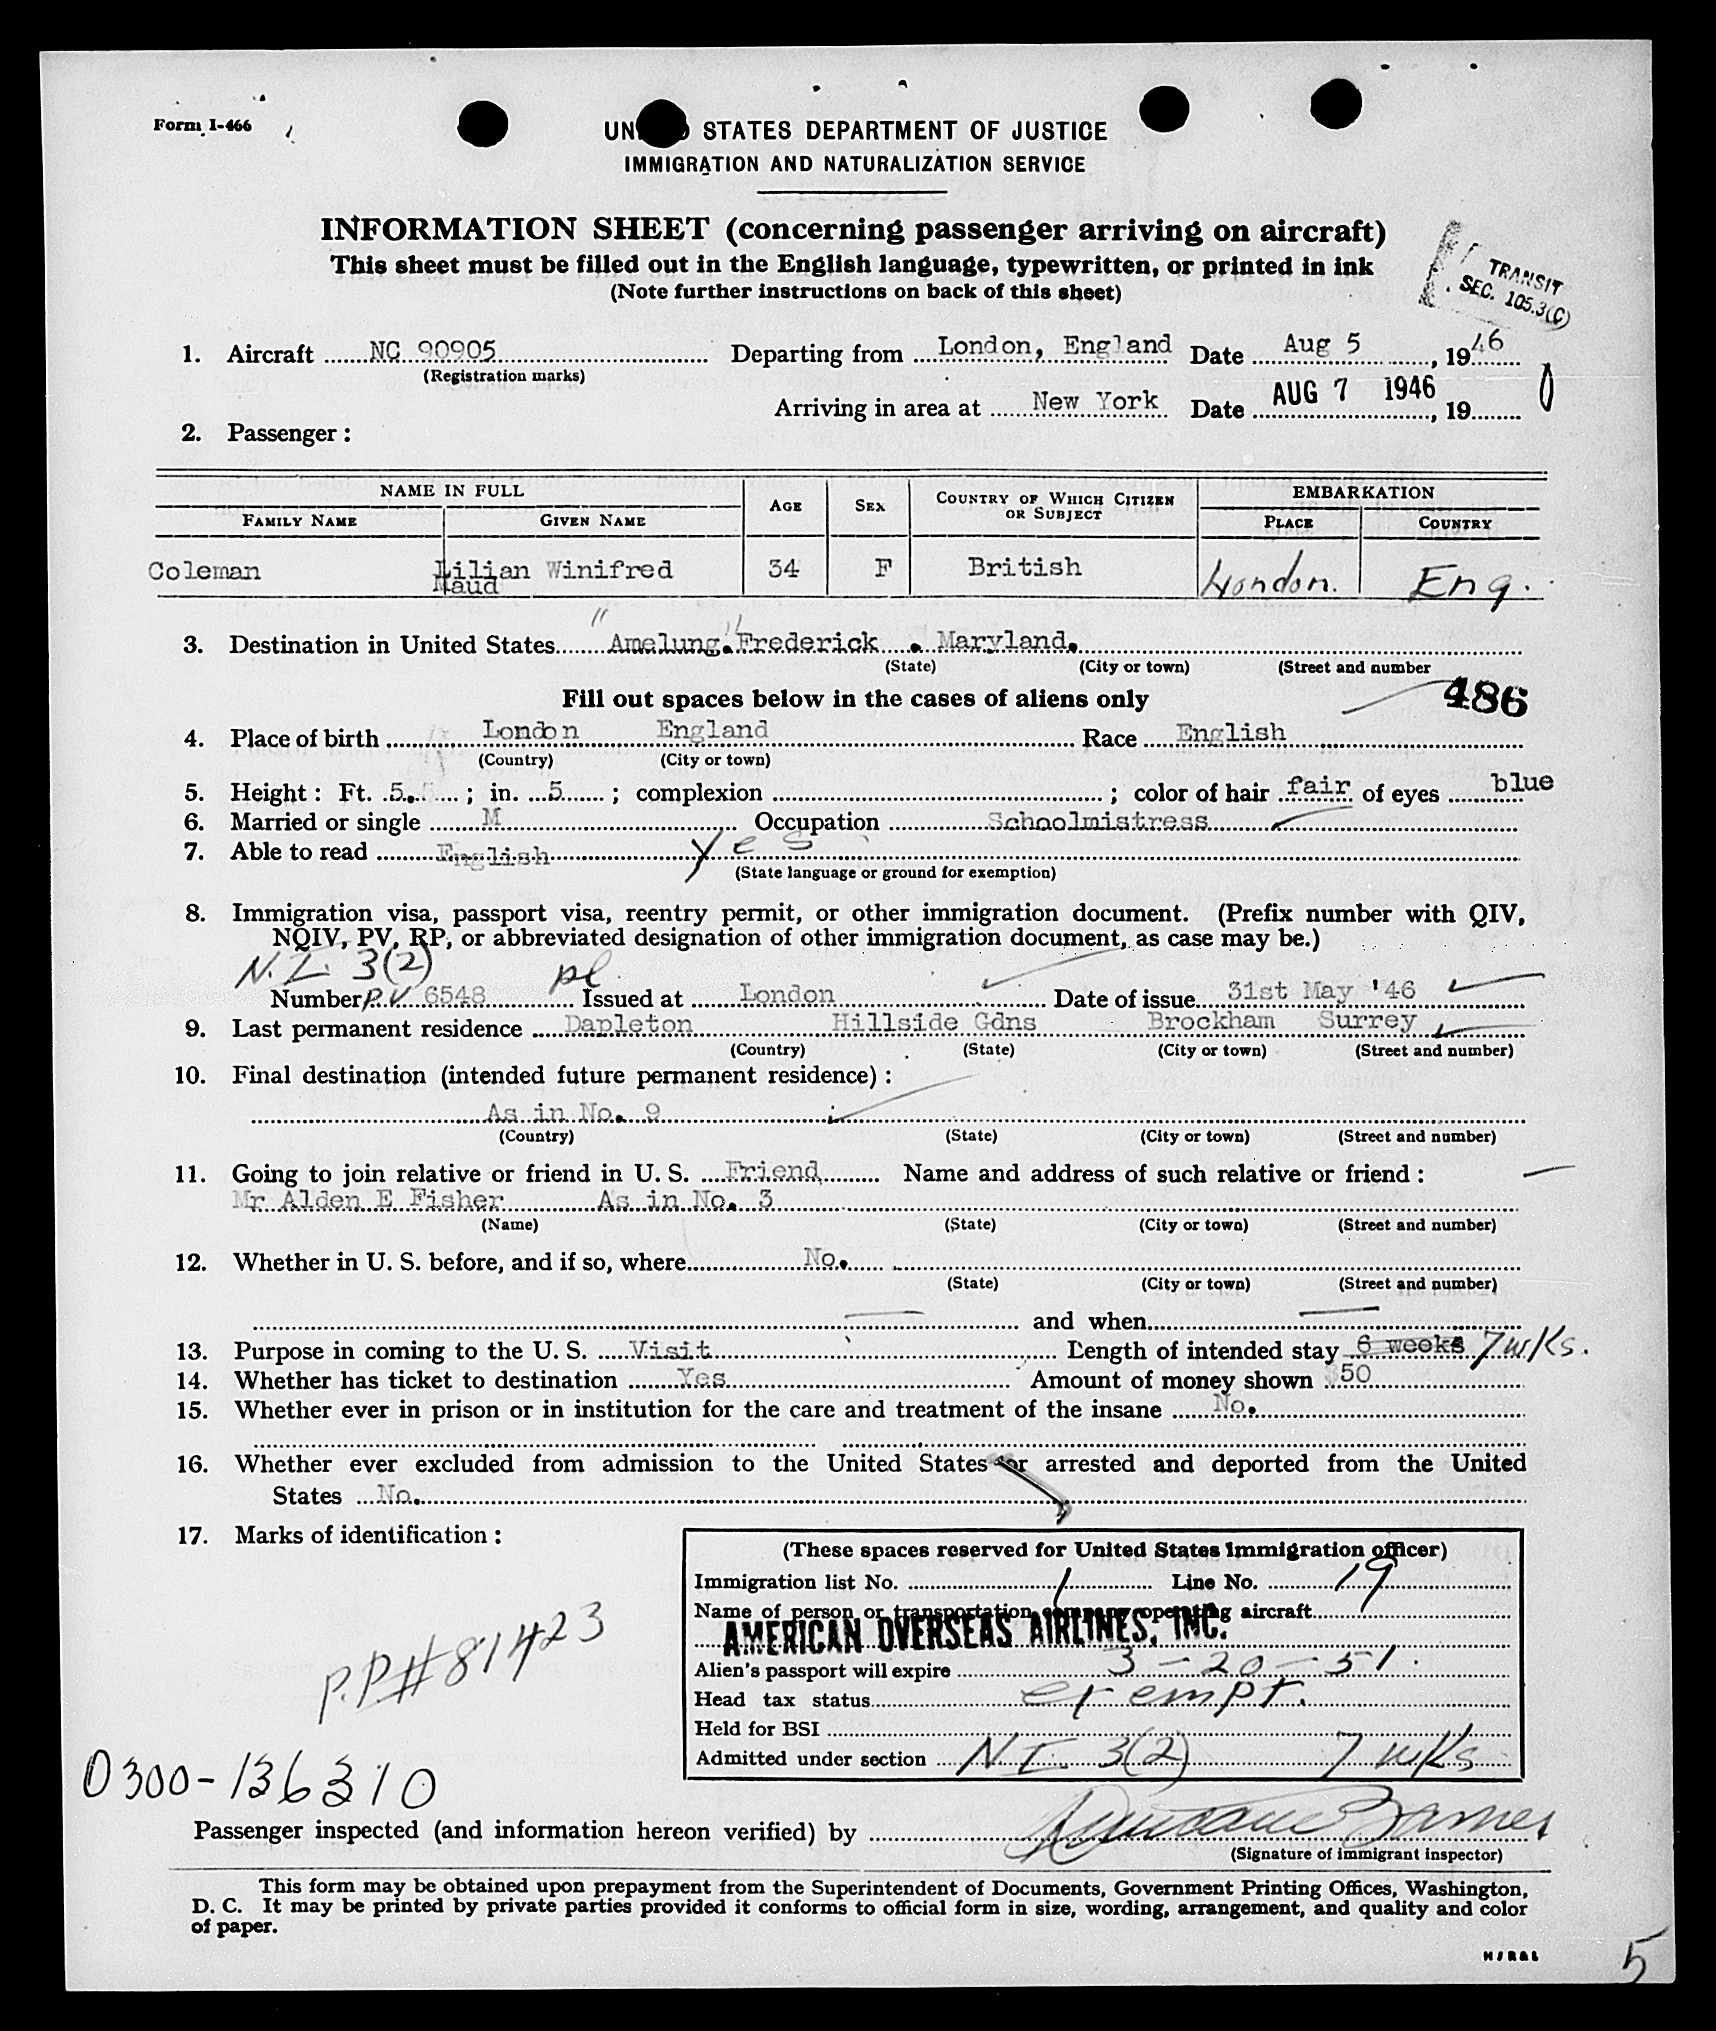 Form I-466
UNITED STATES DEPARTMENT OF JUSTICE
IMMIGRATION AND NATURALIZATION SERVICE
INFORMATION SHEET (concerning passenger arriving on aircraft)
This sheet must be filled out in the English language, typewritten, or printed in ink
(Note further instructions on back of this sheet)
TRANSIT
SEC. 105.3(C)
1. Aircraft NC 90905 Departing from London, England Date Aug 5, 1946
(Registration marks)
Arriving in area at New York Date AUG 7 1946, 19
2. Passenger:
NAME IN FULL AGE SEX COUNTRY OF WHICH CITIZEN OR SUBJECT EMBARKATION
FAMILY NAME GIVEN NAME PLACE COUNTRY
Coleman Lilian Winifred 34 F British London. Eng.
Maud
3. Destination in United States "Amelung" Frederick. Maryland.
(State) (City or town) (Street and number
Fill out spaces below in the cases of aliens only 486
4. Place of birth London England Race English
(Country) (City or town)
5. Height: Ft. 5. ; in. 5 ; complexion ; color of hair fair of eyes blue
6. Married or single M Occupation Schoolmistress
7. Able to read English yes
(State language or ground for exemption)
8. Immigration visa, passport visa, reentry permit, or other immigration document. (Prefix number with QIV,
NQIV, PV, RP, or abbreviated designation of other immigration document, as case may be.)
N.I. 3(2)
Number P.V. 6548 Issued at London Date of issue 31st May '46
9. Last permanent residence Dapleton Hillside Gdns Brockham Surrey
(Country) (State) (City or town) (Street and number)
10. Final destination (intended future permanent residence):
As in No. 9
(Country) (State) (City or town) (Street and number)
11. Going to join relative or friend in U. S. Friend Name and address of such relative or friend:
Mr Alden E Fisher As in No. 3
(Name) (State) (City or town) (Street and number)
12. Whether in U. S. before, and if so, where No.
(State) (City or town) (Street and number)
and when
13. Purpose in coming to the U. S. Visit Length of intended stay 6 weeks 7 wks.
14. Whether has ticket to destination Yes Amount of money shown $50
15. Whether ever in prison or in institution for the care and treatment of the insane No.
16. Whether ever excluded from admission to the United States or arrested and deported from the United
States No.
17. Marks of identification:
(These spaces reserved for United States Immigration officer)
Immigration list No. 1 Line No. 19
Name of person or transportation company operating aircraft
AMERICAN OVERSEAS AIRLINES, INC.
Alien's passport will expire 3-20-51.
Head tax status exempt.
Held for BSI
Admitted under section N I. 3(2) 7 wks
P.P.# 81423
0300-136310
Passenger inspected (and information hereon verified) by
(Signature of immigrant inspector)
This form may be obtained upon prepayment from the Superintendent of Documents, Government Printing Offices, Washington,
D. C. It may be printed by private parties provided it conforms to official form in size, wording, arrangement, and quality and color
of paper.
5